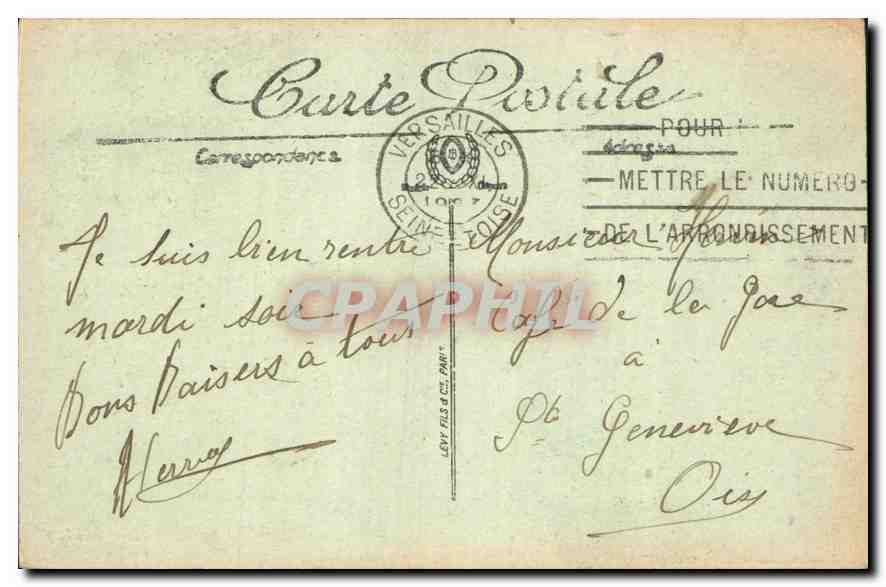 Carte Postale
Correspondance
Adresse
VERSAILLES
SEINE ET OISE
POUR
METTRE LE NUMERO
DE L'ARRONDISSEMENT
Je suis bien rentré
mardi soir
Bons Baisers à tous
Monsieur
Café de la Gare
à
Ste Geneviève
Oise
LÉVY FILS & Cie, PARIS
CPAPHIL